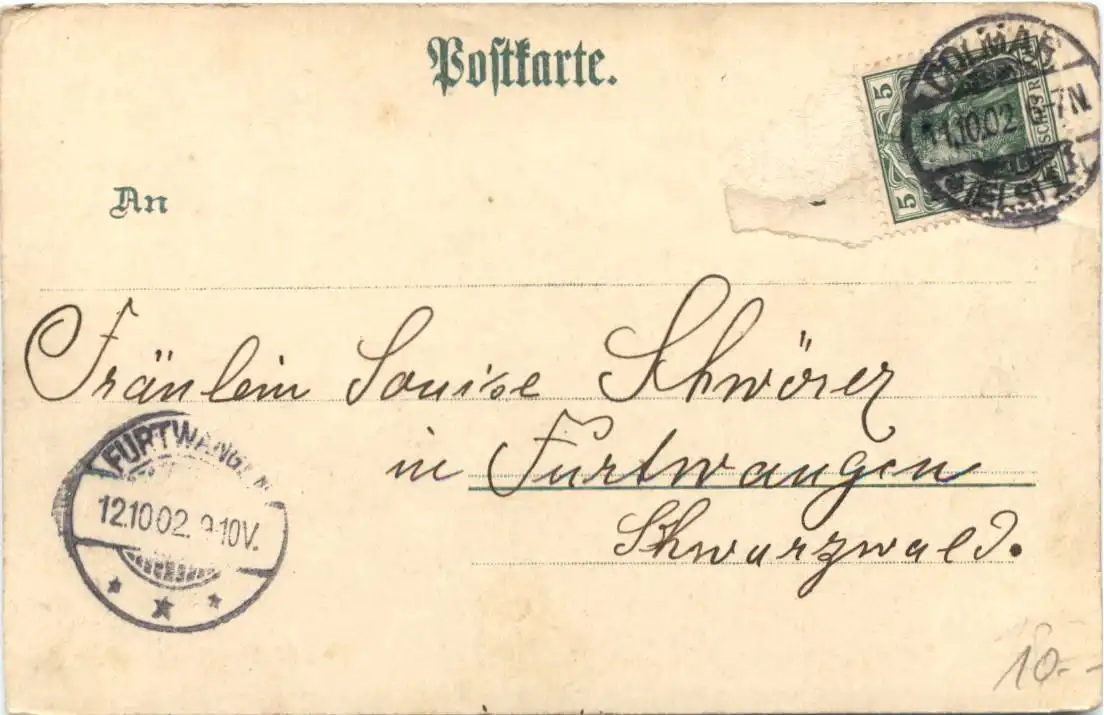 Postkarte.
COLMAR
11.10.02 -7N.
(ELS)
5
5
An
Fräulein Louise Schwörer
in Furtwangen
Schwarzwald.
FURTWANGEN
12.10.02. 9-10V.
10.-